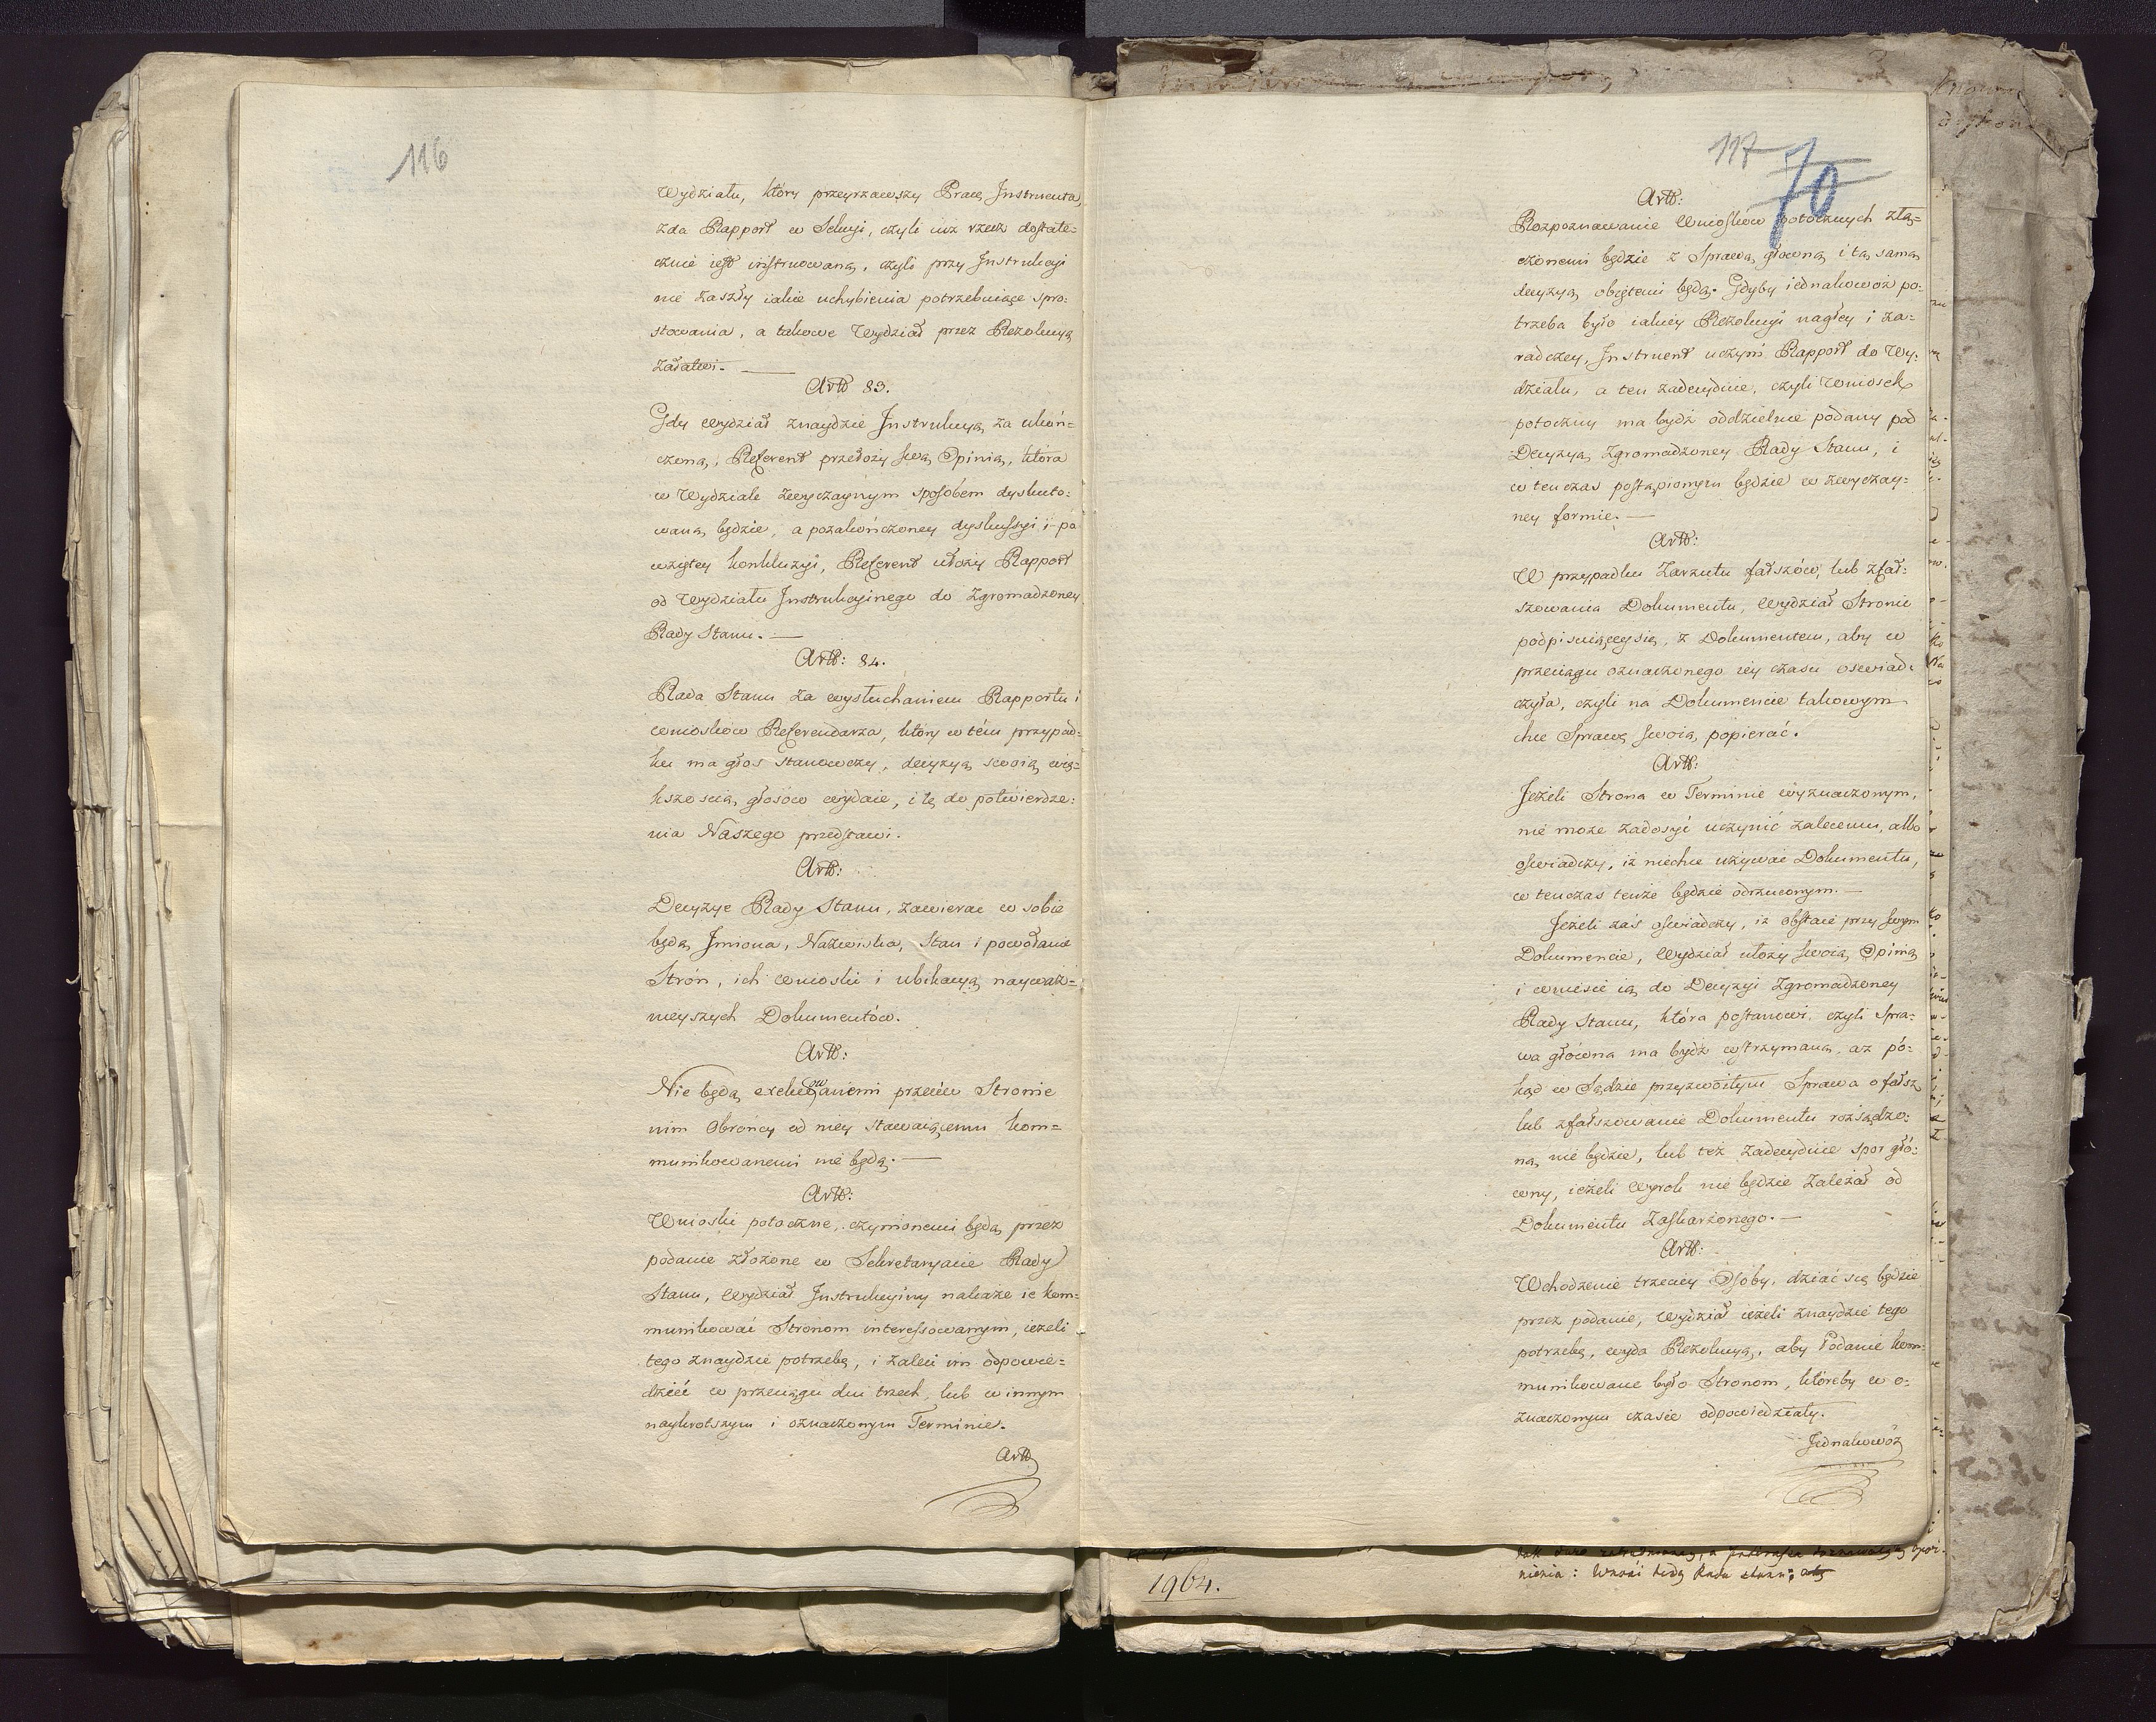 116
Wydziału, który przeyrzawszy Pracę Instruenta,
zda Rapport w Sekcyi, czyli iuż rzecz dostate=
cznie iest instruowaną, czyli przy Instrukcyi
nie zaszły iakie uchybienia potrzebuiące spro=
stowania, a takowe Wydział przez Rezolucyą
załatwi.
Artt 83.
Gdy Wydział znaydzie Instrukcyą za ukoń=
czoną, Referent przełoży swą Opinią, która
w Wydziale zwyczaynym sposobem dyskuto=
waną będzie, a po zakończoney dyskussyi i po
wziętey konkluzyi, Referent ułoży Rapport
od Wydziału Instrukcyinego do Zgromadzoney
Rady Stanu.
Artt: 84.
Rada Stanu za wysłuchaniem Rapportu i
wniosków Referendarza, który w tém przypad=
ku ma głos stanowczy, decyzyą swoią wię=
kszością głosów wydaie, i tę do potwierdze=
nia Naszego przedstawi.
Artt:
Decyzye Rady Stanu, zawierać w sobie
będą Imiona, Nazwiska, Stan i powołanie
Strón, ich wnioski i ubikacyą nayważ=
nieyszych Dokumentów.
Artt:
Nie będą exekwowanemi przeciw Stronie
nim Obrońcy od niey stawaiącemu kom=
munikowanemi nie będą.
Artt:
Wnioski potoczne, czynionemi będą przez
podanie złożone w Sekretaryacie Rady
Stanu, Wydział Instrukcyiny nakaże ie kom=
munikować Stronom interessowanym, ieżeli
tego znaydzie potrzebę, i zaleci im odpowie=
dzieć w przeciągu dni trzech, lub w innym
naykrotszym i oznaczonym Terminie.
Artt
117
70
Artt:
Rozpoznawanie Wniosków potocznych złą=
czonemi będzie z Sprawą główną i tą samą
decyzyą obiętemi będą. Gdyby iednakowoż po=
trzeba było iakiey Rezolucyi nagłey i za=
radczey, Instruent uczyni Rapport do Wy=
działu, a ten zadecyduie, czyli Wniosek
potoczny ma bydź oddzielnie podany pod
Decyzyą Zgromadzoney Rady Stanu, i
w tenczas postąpionym będzie w zwyczay=
ney formie.
Artt:
W przypadku Zarzutu fałszów, lub zfał=
szowania Dokumentu, Wydział Stronie
podpisuiącey się, z Dokumentem, aby w
przeciągu oznaczonego iey czasu oświad=
czyła, czyli na Dokumencie takowym
chce Sprawę swoią popierać.
Artt:
Jeżeli Strona w Terminie wyznaczonym,
nie może zadosyć uczynić zaleceniu, albo
oświadczy, iż niechce używać Dokumentu,
w tenczas tenże będzie odrzuconym.
Jeżeli zaś oświadczy, iż obstaie przy swym
Dokumencie, Wydział ułoży swoią Opinią
i wniesie ią do Decyzyi Zgromadzoney
Rady Stanu, która postanowi, czyli Spra=
wa główna ma bydź wstrzymaną, aż pó=
kąd w Sądzie przyzwoitym Sprawa o fałsz
lub zfałszowanie Dokumentu rozsądzo=
ną nie będzie, lub też zadecyduie spor głó=
wny, ieżeli wyrok nie będzie zależał od
Dokumentu zaskarżonego.
Artt:
Wchodzenie trzeciey Osoby, dziać się będzie
przez podanie, Wydział ieżeli znaydzie tego
potrzebę, wyda Rezolucyą, aby Podanie kom=
munikowane było Stronom, któreby w o=
znaczonym czasie odpowiedziały.
Jednakowoż
1964.
nienia: Wnosi tedy Rada stanu; aby